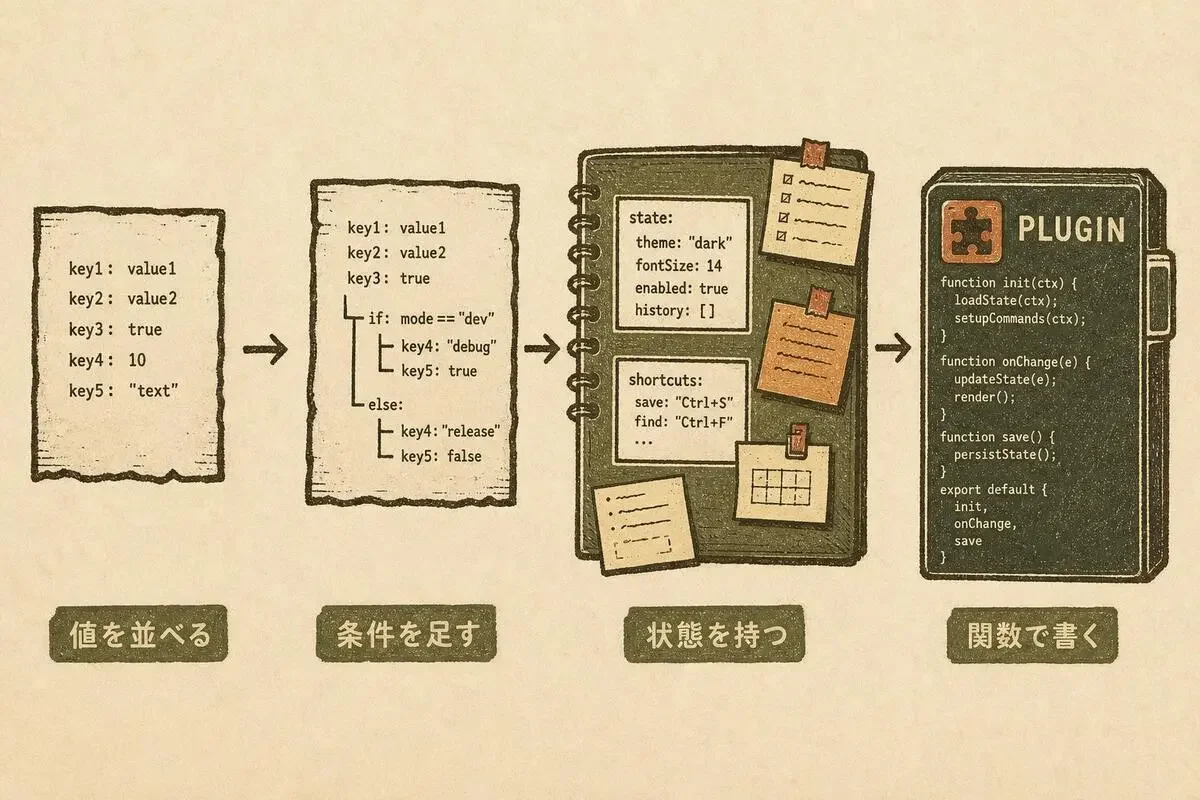 key1: value1
key2: value2
key3: true
key4: 10
key5: "text"
値を並べる
key1: value1
key2: value2
key3: true
if: mode == "dev"
key4: "debug"
key5: true
else:
key4: "release"
key5: false
条件を足す
state:
theme: "dark"
fontSize: 14
enabled: true
history: []
shortcuts:
save: "Ctrl+S"
find: "Ctrl+F"
...
状態を持つ
PLUGIN
function init(ctx) {
loadState(ctx);
setupCommands(ctx);
}
function onChange(e) {
updateState(e);
render();
}
function save() {
persistState();
}
export default {
init,
onChange,
save
}
関数で書く